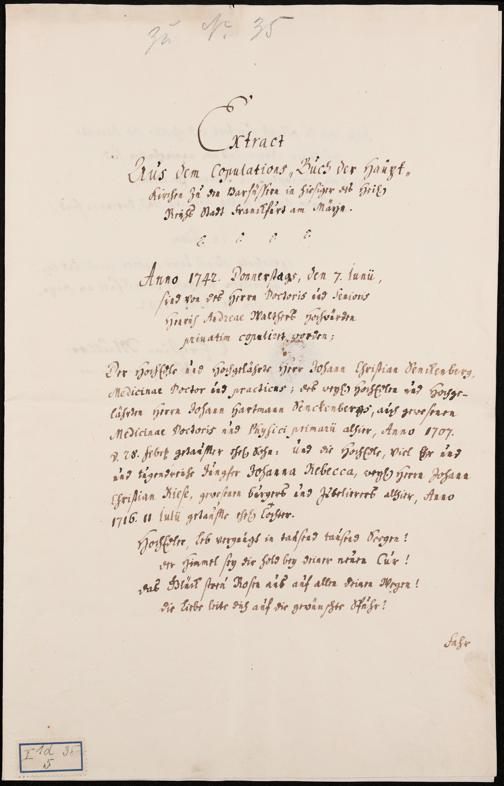 zu N. 35
Extract
Aus dem Copulations-Buch der Haupt-
Kirchen zu den Barfüssern in hiesiger des Heil.
Reichs Stadt Franckfurt am Mayn.
Anno 1742. Donnerstags, den 7. Junii,
sind von des Herrn Doctoris und Senioris
Henrich Andreae Walthers Hochwürden
privatim copuliret worden;
Der HochEdle und Hochgelährte Herr Johann Christian Senckenberg,
Medicinae Doctor und practicus; des weyl. HochEdlen und Hochge-
lährten Herrn Johann Hartmann Senckenbergs, auch gewesenen
Medicinae Doctoris und Physici primarii alhier, Anno 1707.
d. 28. Febr. getauffter ehel. Sohn: Und die HochEdle, Viel Ehr und
und tugendreiche Jungfer Johanna Rebecca, weyl. Herrn Johann
Christian Riese, gewesenen burgers und Jubelierers alhier, Anno
1716. 11 Julii getauffte ehel. Tochter.
HochEdler, leb vergnügt in tausend tausend Seegen!
der Himmel sey dir hold bey deiner neuen Cur!
das Glück streu Rosen aus auf allen deinen Wegen!
die liebe leite dich auf die gewünschte Spuhr!
Fahr
I 1d 35
5